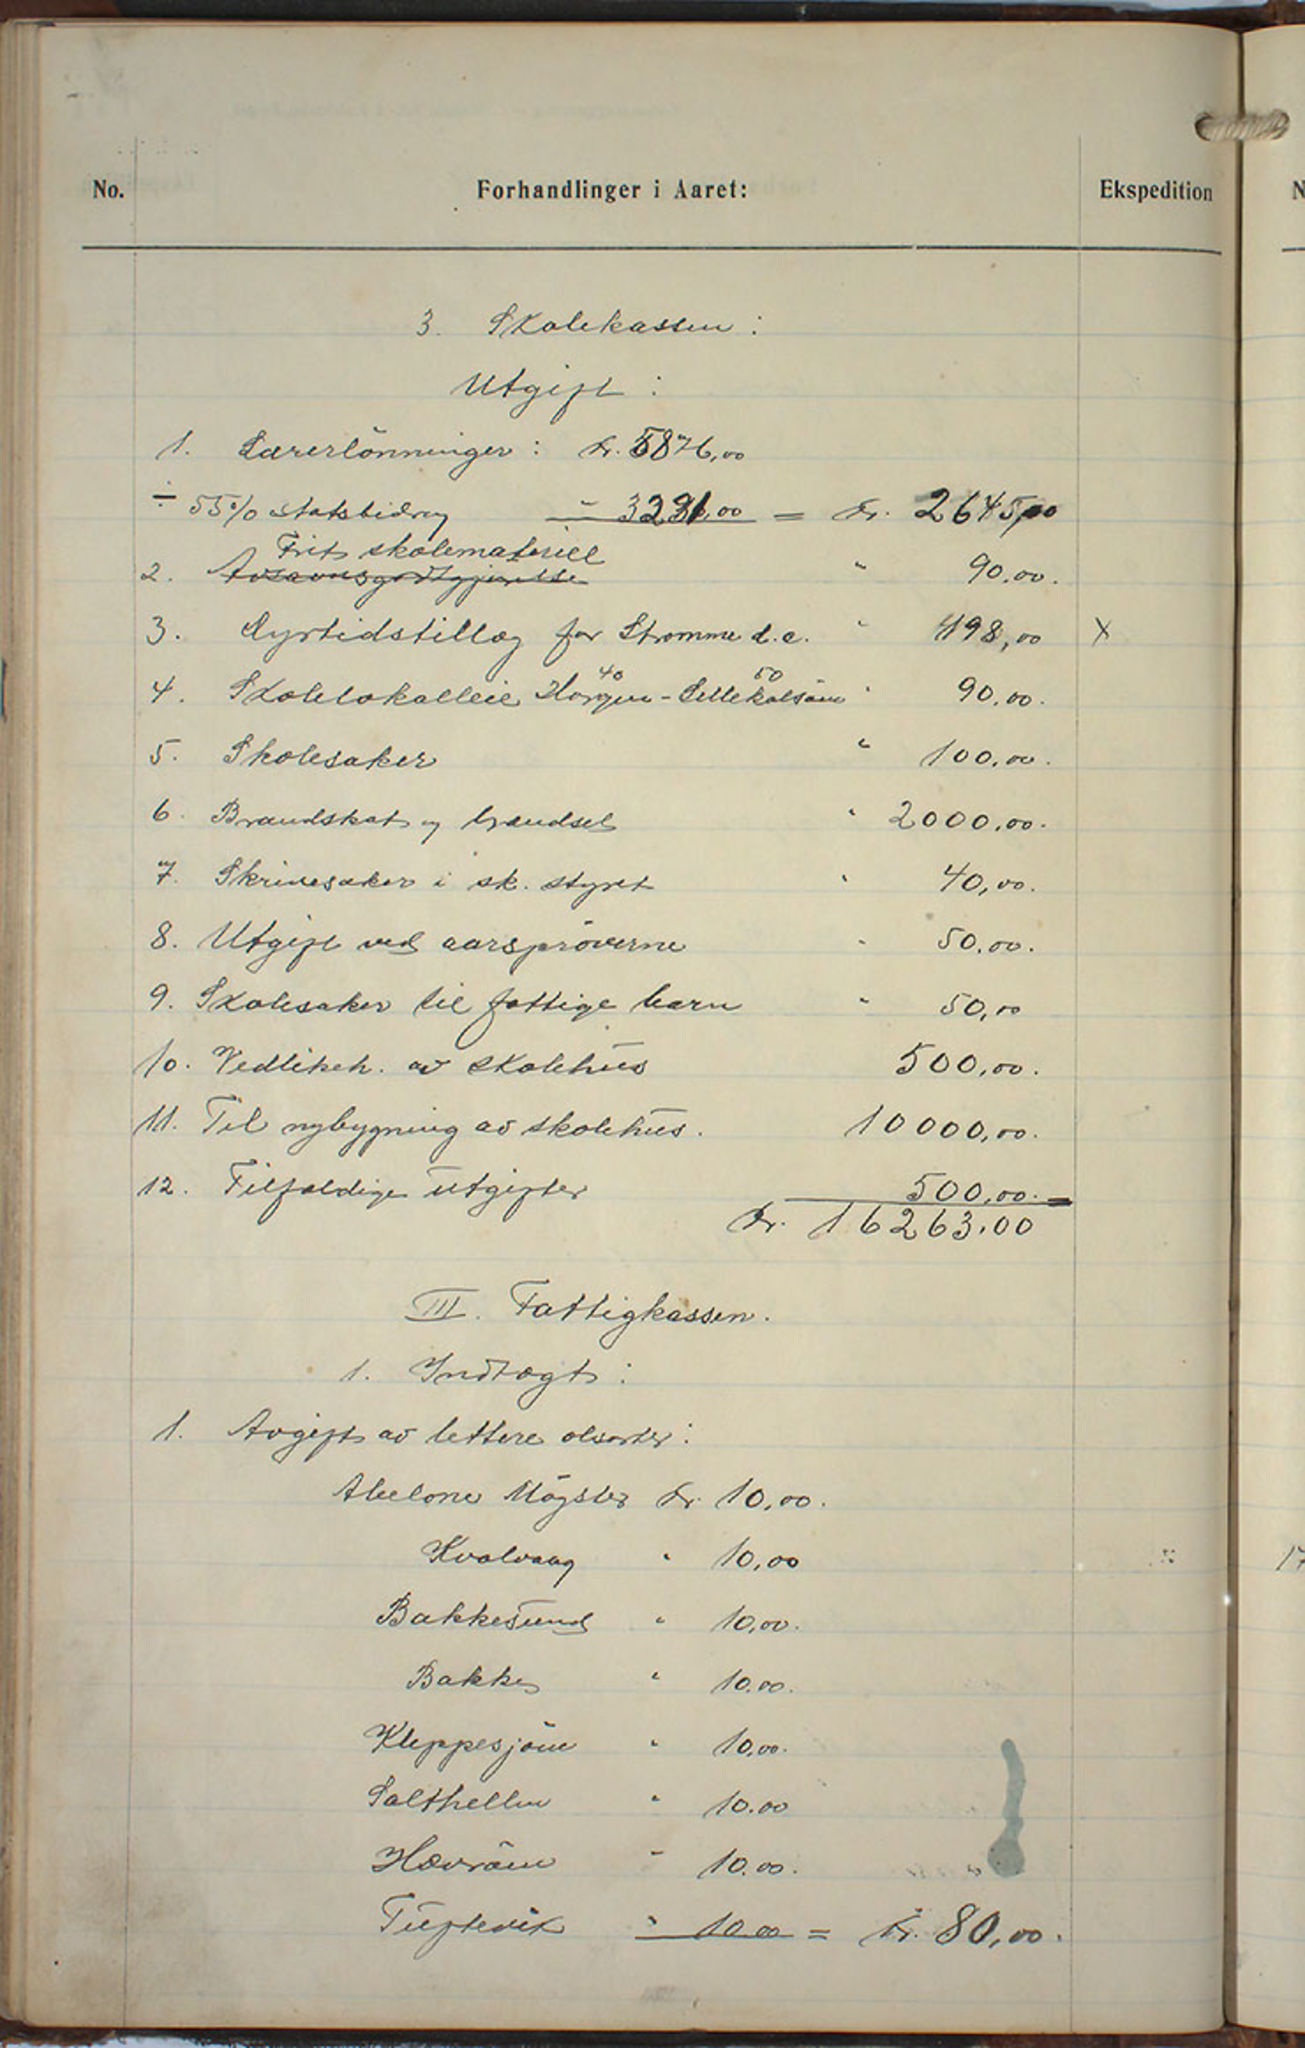 No. Forhandlinger i Aaret: Ekspedition
3. Skolekassen:
Utgift:
1. Lærerlönninger: Kr. 5876,00
÷ 55% statsbidrag " 3231,00 = Kr. 2645,00
Frit skolemateriell
2. " 90.00.
3. Dyrtidstillæg for Stromme d.e. " 498,00 X
40 50
4. Skolelokalleie Horgen - Lillekalsöen " 90.00.
5. Skolesaker " 100.00.
6. Brandskat og brændsel " 2000.00.
7. Skrivesaker i sk. styret " 40,00.
8. Utgift ved aarspröverne " 50.00.
9. Skolesaker til fattige barn " 50,00
10. Vedlikeh. av skolehus 500,00.
11. Til nybygning av skolehus. 10000,00.
12. Tilfældige utgifter 500,00.
Kr. 16263.00
III. Fattigkassen.
1. Indtægt:
1. Avgift av lettere ölsorter:
Abelone Mögster Kr. 10,00.
Kvalvaag " 10,00
Bakkesund " 10,00.
Bakke " 10.00.
Kleppesjöen " 10,00.
Salthellen " 10.00
Hævröen " 10.00.
Tuftevik " 10.00 = Kr. 80,00.
17